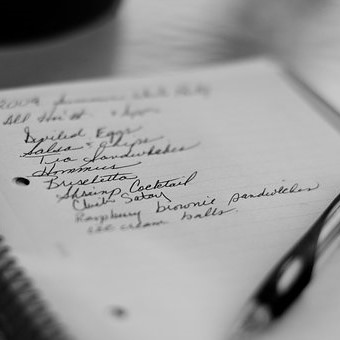 2009 Summer White Party
All
Deviled Eggs
Salsa & Chips
Tea Sandwiches
Hommus
Bruschetta
Shrimp Cocktail
Chick Satay
Raspberry brownie sandwiches
ice cream balls